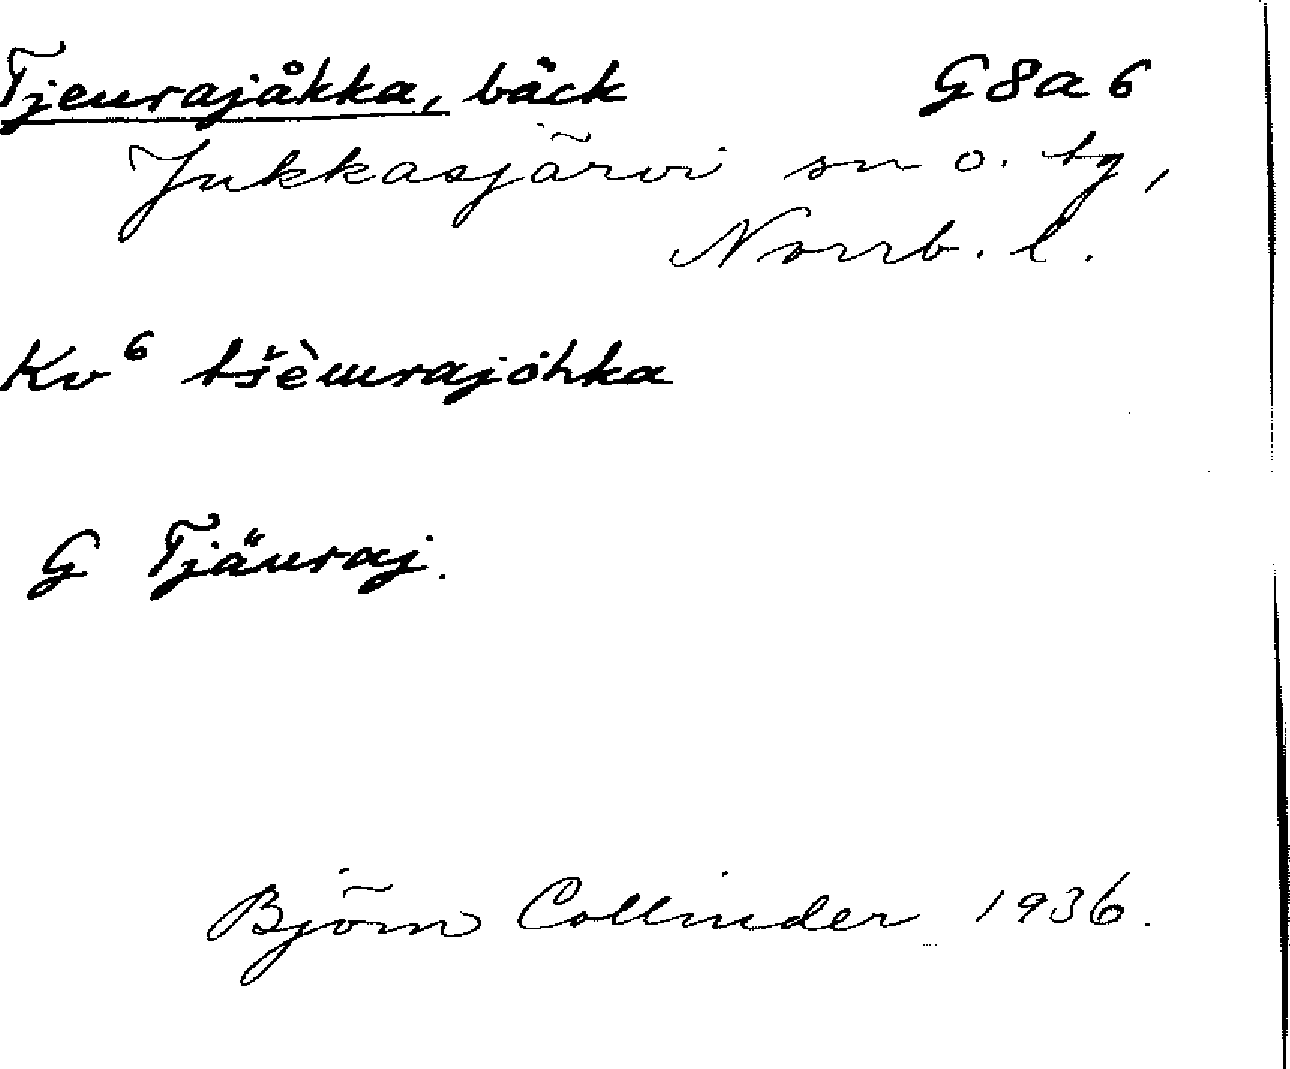 Tjeurajåkka, bäck G8a6
Jukkasjärvi sn o. tg,
Norrb. l.
Kv⁶ tšèurajòhka
G Tjäuraj.
Björn Collinder 1936.